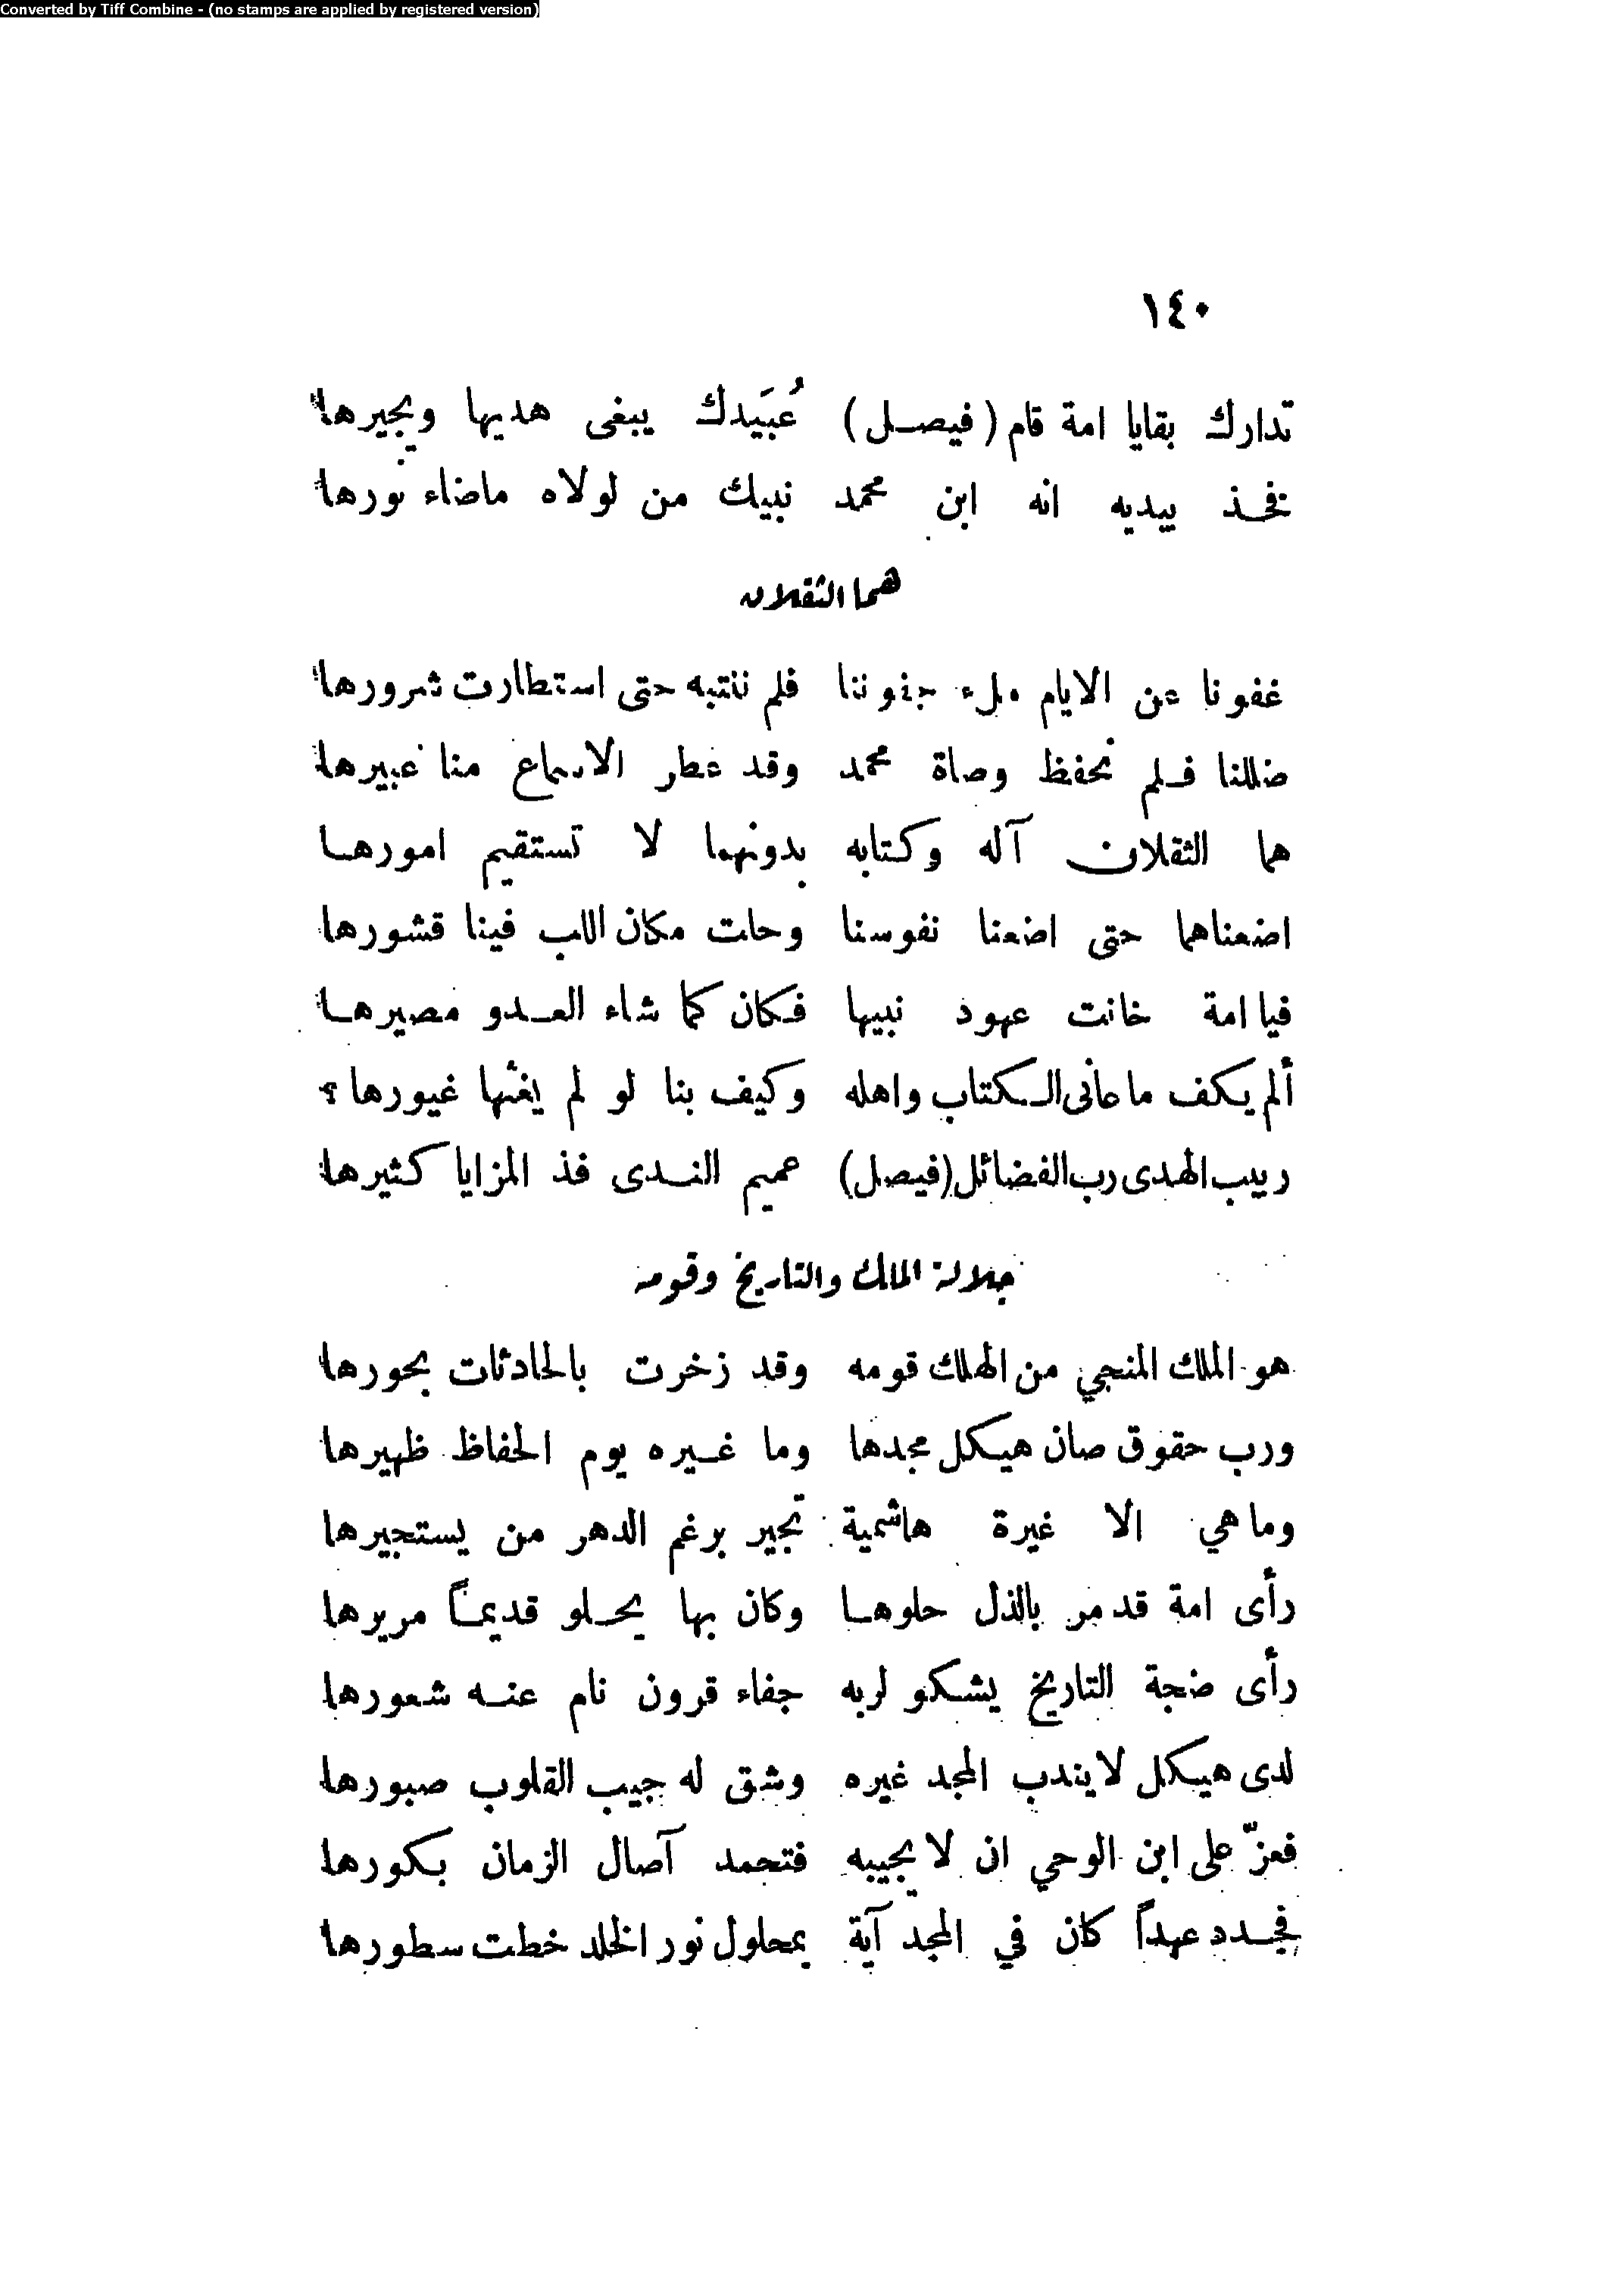 Converted by Tiff Combine - (no stamps are applied by registered version)
١٤٠
تدارك بقايا امة قام (فيصل) عُبَيدك يبغى هديها ويجيرها
فخذ بيديه انه ابن محمد نبيك من لولاه ماضاء نورها
هما الثقلان
غفونا عن الايام ملء جفوننا فلم ننتبه حتى استطارت شرورها
ضللنا فلم نحفظ وصاة محمد وقد عطر الاسماع منا عبيرها
هما الثقلان آله وكتابه بدونهما لا تستقيم امورها
اضعناهما حتى اضعنا نفوسنا وحلت مكان اللب فينا قشورها
فيا امة خانت عهود نبيها فكان كما شاء العدو مصيرها
ألم يكف ما عانى الكتاب واهله وكيف بنا لو لم يغثها غيورها ؟
ربيب الهدى رب الفضائل (فيصل) عميم الندى فذ المزايا كثيرها
جلالة الملك والتاريخ وقومه
هو الملك المنجي من الهلك قومه وقد زخرت بالحادثات بحورها
ورب حقوق صان هيكل مجدها وما غيره يوم الحفاظ ظهيرها
وما هي الا غيرة هاشمية تجير برغم الدهر من يستجيرها
رأى امة قد مر بالذل حلوها وكان بها يحلو قديماً مريرها
رأى ضجة التاريخ يشكو لربه جفاء قرون نام عنه شعورها
لدى هيكل لا يندب المجد غيره وشق له جيب القلوب صبورها
فعزّ على ابن الوحي ان لا يجيبه فتحمد آصال الزمان بكورها
فجدد عهداً كان في المجد آية بمحلول نور الخلد خطت سطورها